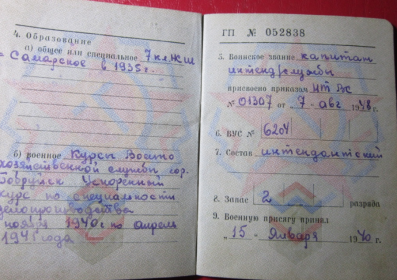 4. Образование
а) общее или специальное 7 кл. ЖШ
Самарское в 1935 г.
б) военное Курсы Военно
хозяйственной службы гор.
Бобруйск Ускоренный
курс по специальности
делопроизводства
ноября 1940 г. по апрель
1941 года
ГП № 052838
5. Воинское звание капитан
интенд/службы
присвоено приказом
№ 01307 от „7“ авг 1948 г.
6. ВУС № 6204
7. Состав интендантский
8. Запас 2 разряда
9. Военную присягу принял
„15“ Января 1940 г.